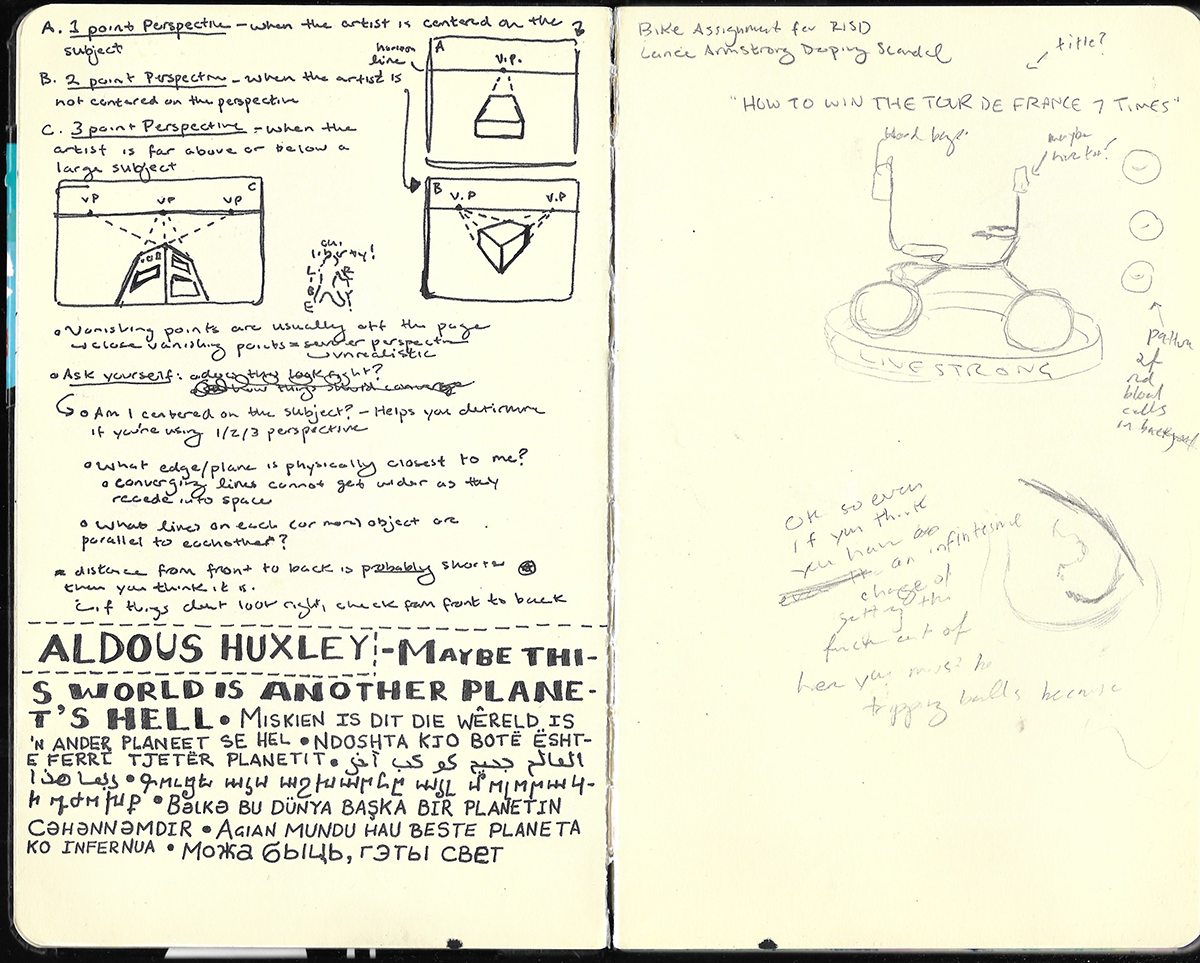 A. 1 point Perspective - when the artist is centered on the
subject
B. 2 point Perspective - when the artist is
not centered on the perspective
C. 3 point Perspective - when the
artist is far above or below a
large subject
horizon
line
A
V.P.
B
V.P
V.P
C
VP
VP
VP
oh!
library!
• Vanishing points are usually off the page
close vanishing points = severer perspective
unrealistic
• Ask yourself: does this look right?
how things should converge
• Am I centered on the subject? - Helps you determine
if you're using 1/2/3 perspective
• What edge/plane is physically closest to me?
• converging lines cannot get wider as they
recede into space
• What lines on each (or more) object are
parallel to eachother?
distance from front to back is probably shorter
than you think it is.
if things dont look right, check from front to back
ALDOUS HUXLEY - MAYBE THI-
S WORLD IS ANOTHER PLANE-
T'S HELL • MISKIEN IS DIT DIE WÊRELD IS
'N ANDER PLANEET SE HEL • NDOSHTA KJO BOTË ËSHT-
E FERRI TJETËR PLANETIT •
ربما هذا
• BƏLKƏ BU DÜNYA BAŞKA BIR PLANETIN
CƏHƏNNƏMDIR • AGIAN MUNDU HAU BESTE PLANETA
KO INFERNUA • МОЖА БЫЦЬ, ГЭТЫ СВЕТ
Bike Assignment for RISD
Lance Armstrong Doping Scandel
title?
"HOW TO WIN THE TOUR DE FRANCE 7 TIMES"
blood bags
maybe
here too?
LIVESTRONG
pattern
of
red
blood
cells
in background
OK so even
if you think
you have
an infintesimal
chance of
getting the
fuck out of
here you must be
tripping balls because